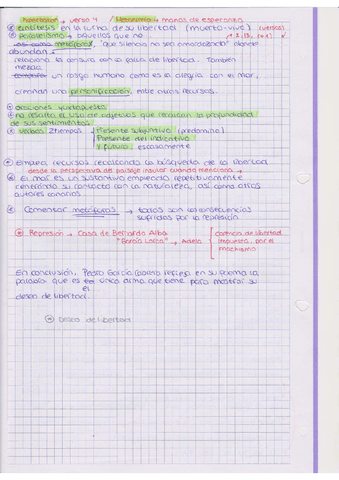 → verso 4 / → manos de esperanza
antítesis en la lucha de su libertad (muerto-vive) (versos)
Polisíndeton → aquellos que no
así como metáforas, "que silencio no sea amordazación" donde
abundan
relaciona la censura con la falta de libertad. También
mezcla
un rasgo humano como es la alegría con el mar,
creando una personificación, entre otros recursos.
oraciones yuxtapuestas
no resalta el uso de adjetivos que recalcan la profundidad
de sus sentimientos
verbos 2 tiempos Presente subjuntivo (predomina)
Presente del indicativo
y futuro escasamente
Emplea recursos recalcando la búsqueda de la libertad
desde la perspectiva de paisaje insular cuando menciona
El mar es un sustantivo empleado repetitivamente
centrando su contacto con la naturaleza, así como otros
autores canarios.
Comentar metáforas → todas son consecuencias
sufridas por la represión
Represión → Casa de Bernarda Alba
"García Lorca" → Adela
carencia de libertad
impuesta por el
machismo
En conclusión, Pedro García Cabrera refleja en su poema la
palabra que es única arma que tiene para mostrar su
el
deseo de libertad.
Deseo de libertad